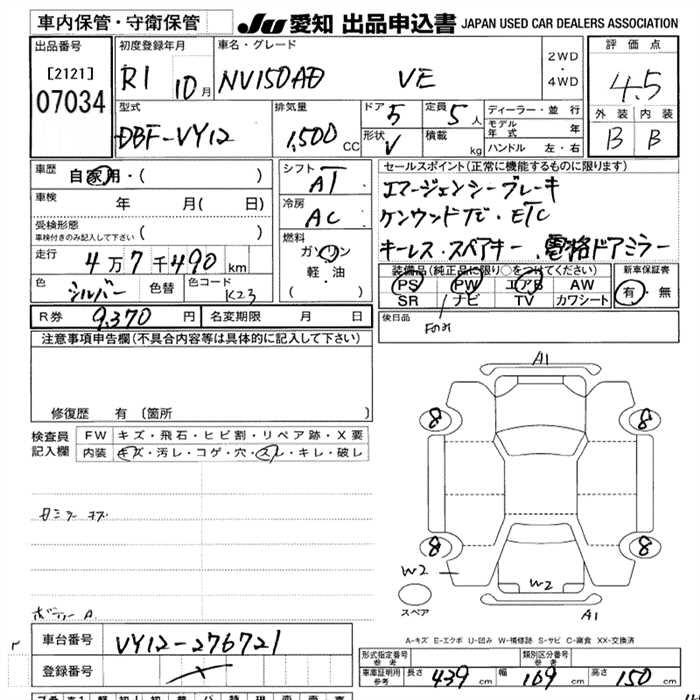 車内保管・守衛保管
JU 愛知 出品申込書 JAPAN USED CAR DEALERS ASSOCIATION
出品番号
[2121]
07034
初度登録年月
R1 10月
車名・グレード
NV150AD VE
2WD
・
4WD
評価点
4.5
外装 内装
B B
型式
DBF-VY12
排気量
1,500 CC
ドア 5
形状 V
定員 5人
積載 kg
ディーラー・並行
モデル年式 年
ハンドル 左・右
車歴
自家用・( )
車検
年 月( 日)
受検形態
車検付きのみ記入して下さい ( )
走行
4万7千490km
色
シルバー 色替 色コード K23
シフト
AT
冷房
AC
燃料
ガソリン
軽・油
( )
セールスポイント(正常に機能するものに限ります)
エマージェンシーブレーキ
ケンウッドTV・ETC
キーレス・スペアキー、電格ドアミラー
装備品(純正品に限り○をつけてください)
PS PW エアB AW
SR ナビ TV カワシート
Fのみ
新車保証書
有・無
R券 9,370円
名変期限 月 日
後日品
注意事項申告欄(不具合内容等は具体的に記入して下さい)
修復歴 有(箇所 )
検査員
記入欄
FW キズ・飛石・ヒビ割・リペア跡・X要
内装 キズ・汚レ・コゲ・穴・スレ・キレ・破レ
A1
8 8
8 8
W2
W2
スペア
A1
A-キズ E-エクボ U-凹み W-補修跡 S-サビ C-腐食 XX-交換済
車台番号 VY12-276721
登録番号
形式指定番号
参考
類別区分番号
参考
車庫証明用
参考
長さ 439cm 幅 169cm 高さ 150cm